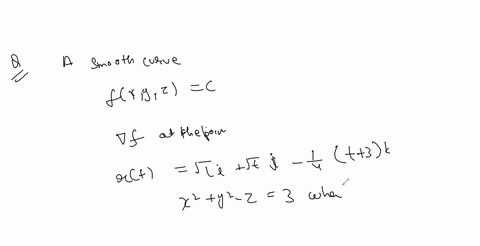 Q A smooth curve
f(x,y,z) = C
∇f at the poin
r(t) = √t i + √t j - 1/4 (t+3) k
x² + y² - z = 3 whe